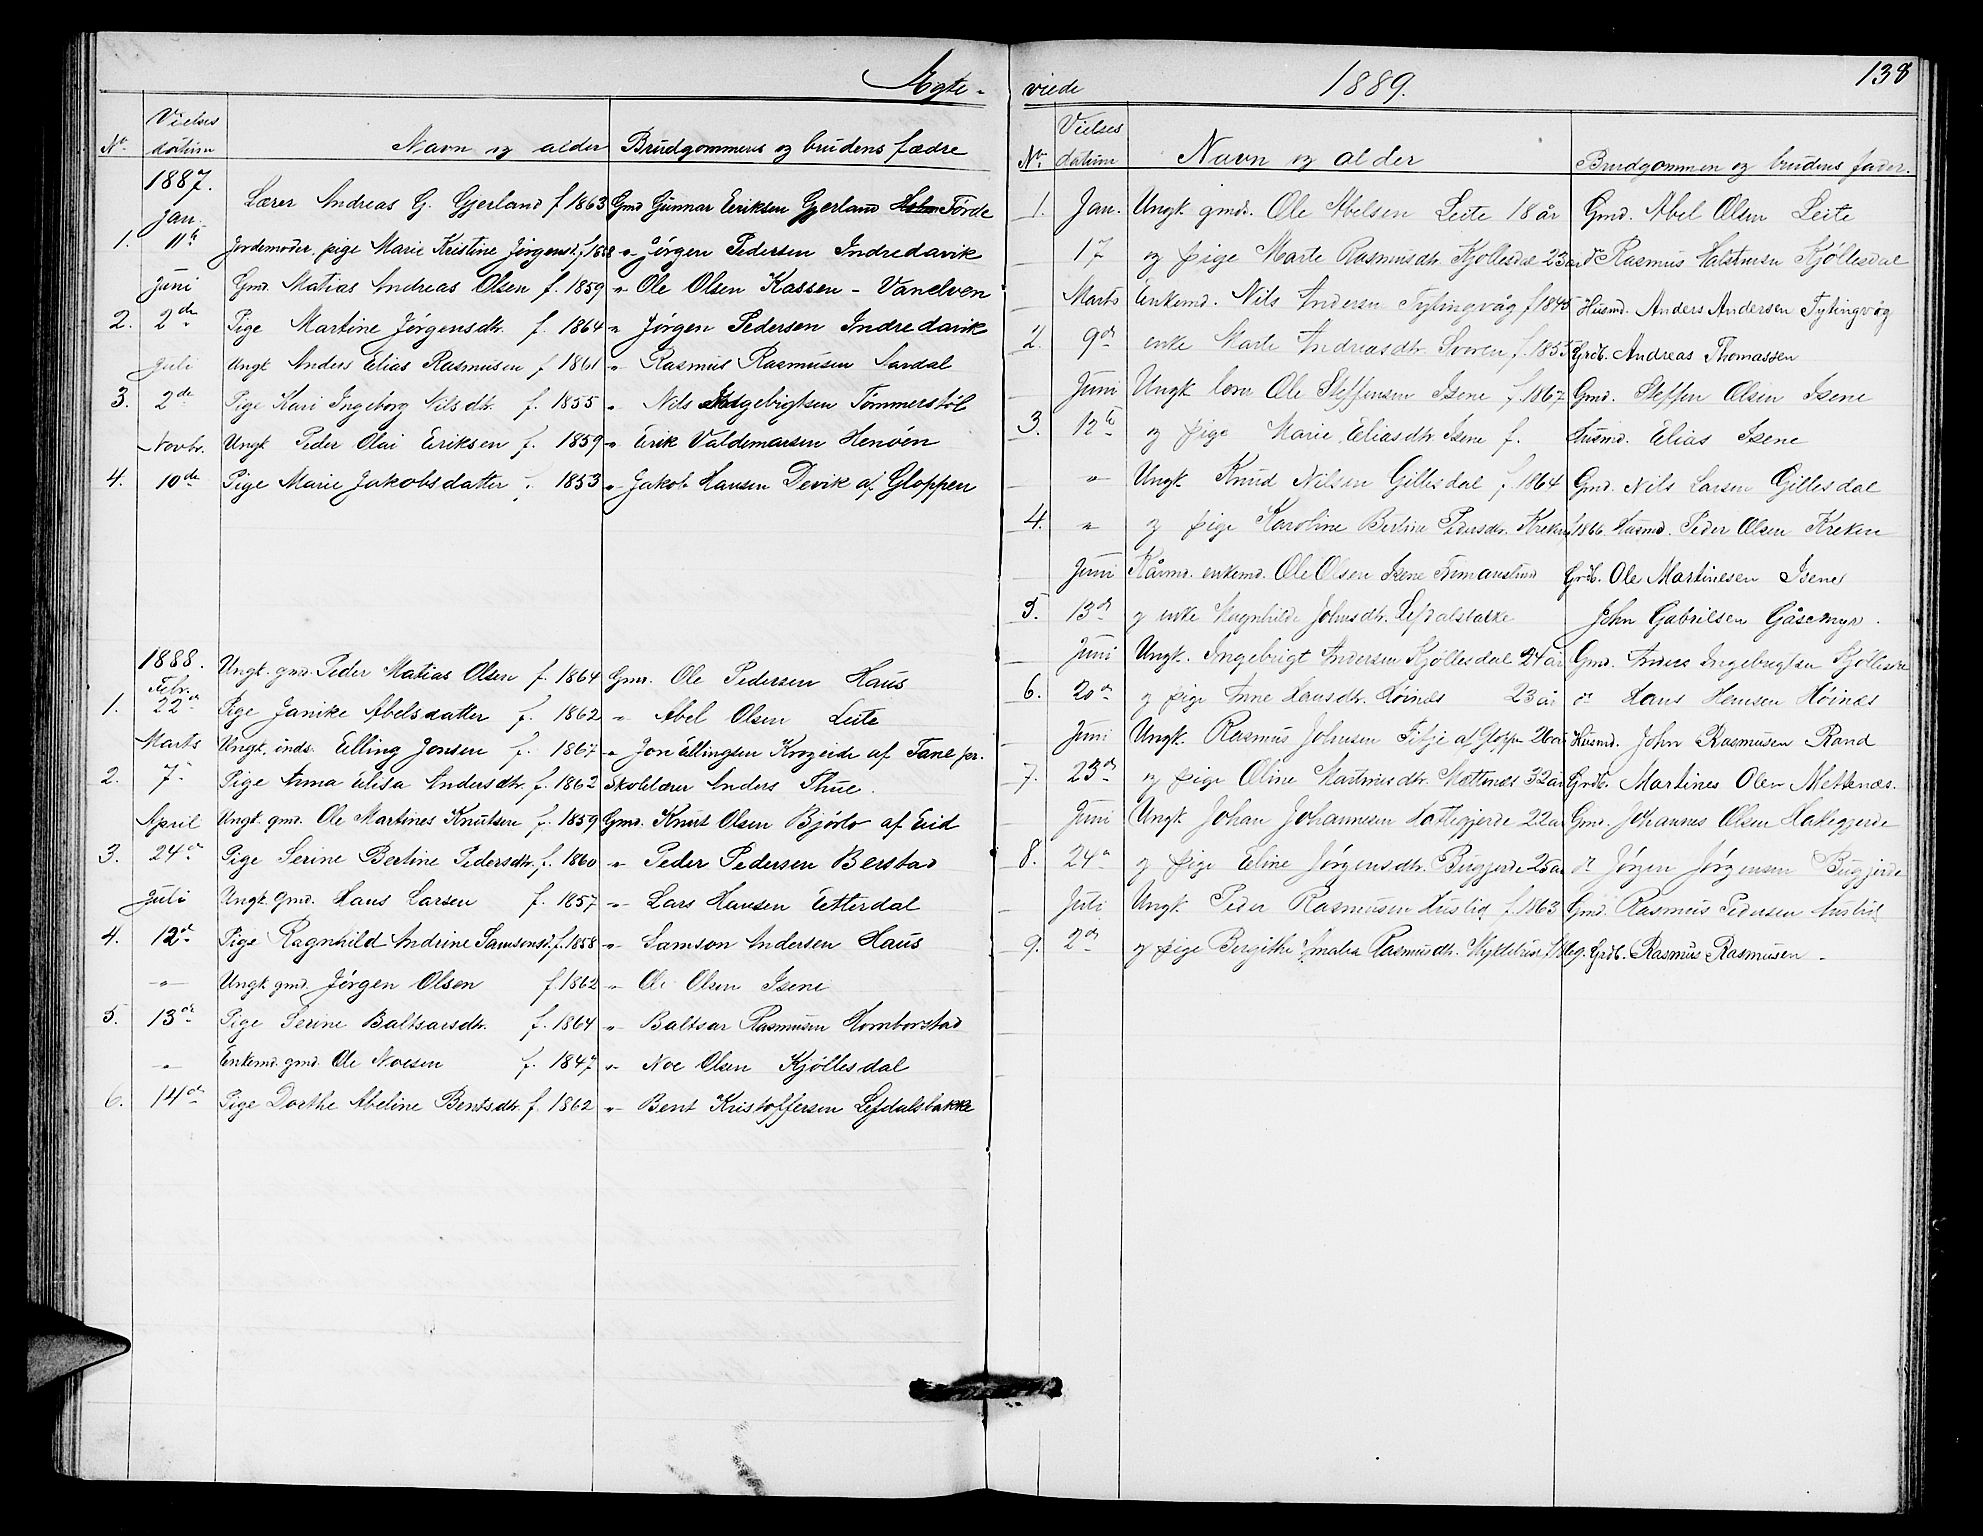 Ægte-
No. Vielses datum Navn og alder Brudgommens og brudens fædre
1887.
Jan. Lærer Andreas G. Gjerland f 1863 Gmd Gunnar Eriksen Gjerland Förde
1. 11te Jordemoder, pige Marie Kristine Jørgensd. " Jörgen Pedersen Indredavik
Juni Gmd. Matias Andreas Olsen f. 1859 " Ole Olsen Kassen - Vanelven
2. 2den Pige Martine Jørgensdtr. f. 1864 " Jørgen Pedersen Indredavik
Juli Ungk. Anders Elias Rasmusen f 1861 " Rasmus Rasmusen Sandal
3. 2de Pige Kari Ingeborg Nilsdtr. f. 1855 " Nils Tømmerstöl
Novbr. Ungk. Peder Olai Eriksen f. 1859 " Erik Valdemarsen Henöen
4. 10de Pige Marie Jakobsdatter f. 1853 " Jakob Hansen Devik af Gloppen
1888. Ungk. gmd. Peder Matias Olsen f. 1864 Gmd. Ole Pedersen Haus
Febr.
1. 22de Pige Janike Abelsdatter f. 1862 " Abel Olsen Leite
Marts Ungk. inds. Elling Jonsen f. 1867 " Jon Ellingsen Krozeide af Fane pr.
2. 7 Pige Anna Elisa Andersdtr. f. 1862 Skolelærer Anders Thue.
April Ungk. gmd. Ole Martines Knutsen f. 1859 Gmd. Knut Olsen Bjørlo af Eid
3. 24de Pige Serine Bertine Pedersdtr. f. 1860 " Peder Pedersen Berstad
Juli Ungk. Gmd. Hans Larsen f. 1857 " Lars Hansen Eetterdal
4. 12te Pige Ragnhild Andrine Samsonsd. f. 1858 " Samson Andersen Haus
" Ungk. gmd. Jørgen Olsen f 1862 " Ole Olsen Isene
5. 13de Pige Serine Baltsarsdtr. f. 1864 " Baltsar Rasmusen Homborstad
" Enkemd. gmd. Ole Noesen f. 1847 " Noe Olsen Kjøllesdal
6. 14de Pige Dorthe Abeline Bentsdtr f. 1862 " Bent Kristoffersen Lefdalsbakke
viede 1889. 138
No. Vielses datum Navn og alder Brudgommen og brudens fader.
1. Jan. Ungk. gmd. Ole Abelsen Leite 18 år Gmd. Abel Olsen Leite
17 og pige Marte Rasmusdtr. Kjøllesdal 23 år Rasmus Kjöllesdal
Marts Enkemd. Nils Andersen Tytingvåg f 1845 Husmd. Anders Andersen Tytingvåg
2. 9de enke Marte Andreasdtr. f. 1855 Grdb. Andreas Thomassen
Juni Ungk. lærer Ole Steffensen Isene f. 1867 Gmd. Steffen Olsen Isene
3. 12te og pige Marie Eliasdtr. Isene f. Husmd. Elias Isene
" Ungk. Knud Nilsen Gillesdal f. 1864 Gmd. Nils Larsen Gillesdal
4. " og pige Karoline Bertine Pedersdtr. Kreken f 1866 Husmd. Peder Olsen Kreken
Juni Kårmd. enkemd. Ole Olsen Isene Grdb. Ole Martinesen Isene
5. 13de og enke Magnhilde Johnsdtr. Lefdalsbakke John Gabrielsen Gåsemyr.
Juni Ungk. Ingebrigt Andersen Kjøllesdal 24 år Gmd. Anders Ingebrigtsen Kjøllesdal
6. 20de og pige Anne Hansdtr. Höinæs 23 år do Hans Hansen Höinæs
Juni Ungk. Rasmus Johnsen Fitje af Gloppen 26 år Husmd. John Rasmusen Rand
7. 23de og pige Oline Martinusdtr. Mettenæs 32 år Grdb. Martines Olsen Mettenæs.
Juni Ungk. Johan Johannesen Hakegjerde 22 år Gmd. Johannes Olsen Hakegjerde
8. 24de og pige Eline Jörgensdtr. Bugjerde 25 år do Jörgen Jörgensen Bugjerde
Juli Ungk. Peder Rasmusen Huslid f. 1863 Gmd. Rasmus Pedersen Huslid
9. 2de og pige Bergithe Amalia Rasmusdtr. Grdb. Rasmus Rasmusen -